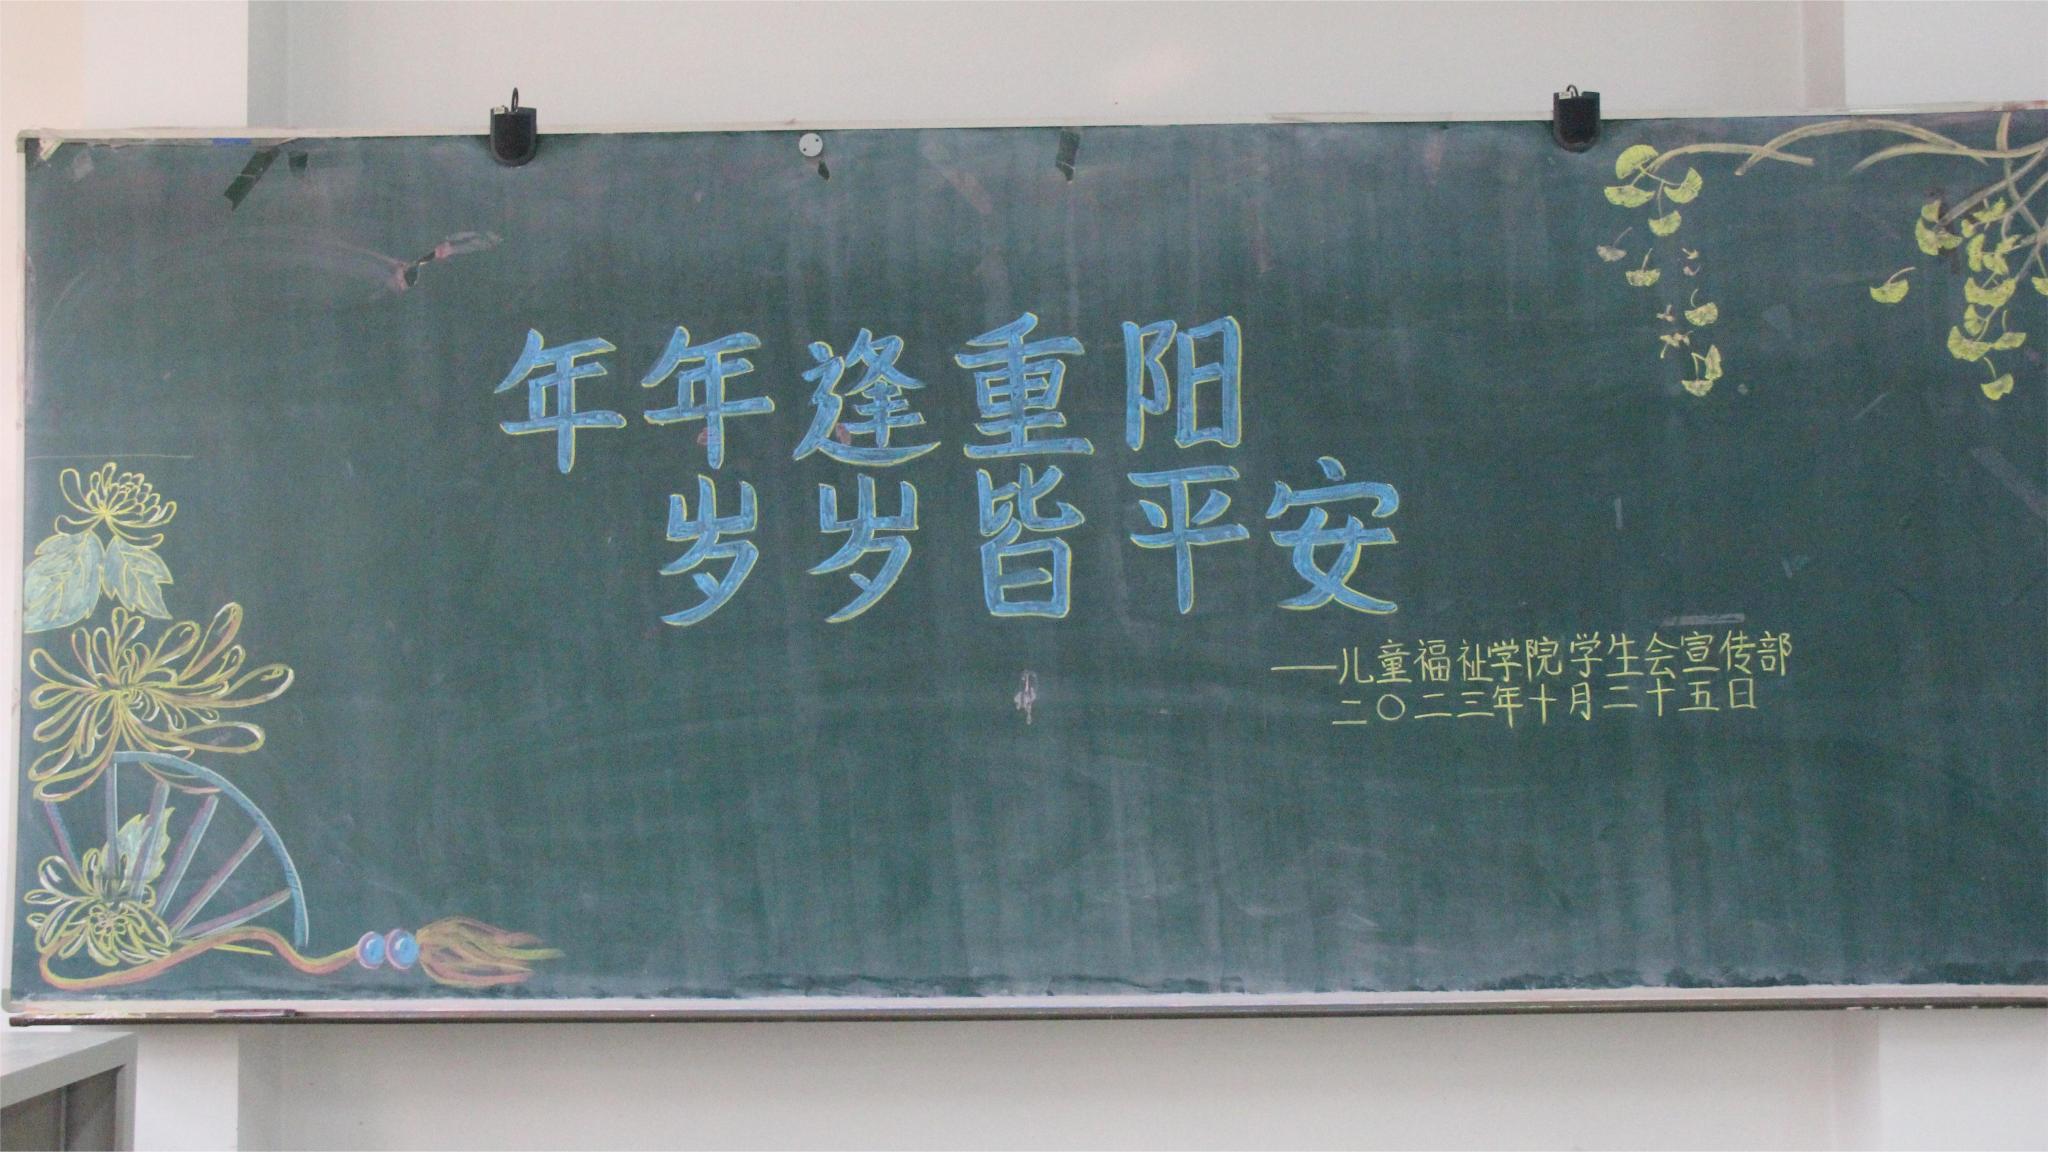 年年逢重阳
岁岁皆平安
——儿童福祉学院学生会宣传部
二〇二三年十月二十五日